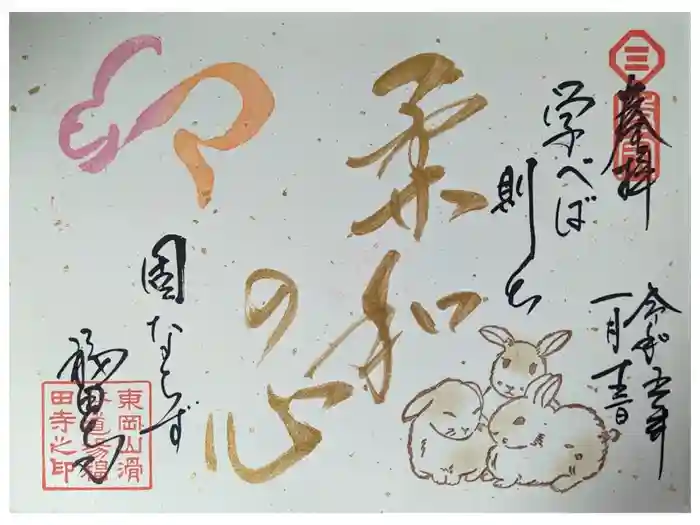 奉拝
令和五年
一月十三日
学べば
則ち
柔和
の心
固ならず
福田寺
東岡山滑
田寺之印